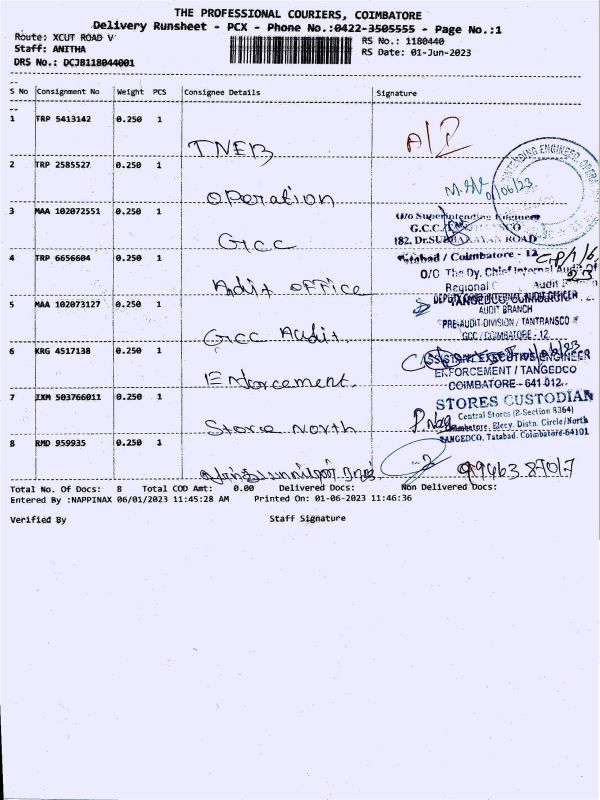 THE PROFESSIONAL COURIERS, COIMBATORE
Delivery Runsheet - PCX - Phone No.:0422-3505555 - Page No.:1
Route: XCUT ROAD V
RS No.: 1180440
Staff: ANITHA
RS Date: 01-Jun-2023
DRS No.: DCJB118044001
S No Consignment No Weight PCS Consignee Details Signature
1 TRP 5413142 0.250 1
TNEB
2 TRP 2585527 0.250 1
Operation
3 MAA 102072551 0.250 1
O/o Superintending Engineer
G.C.C.
GCC
182, Dr.SUBBARAYAN ROAD
4 TRP 6656604 0.250 1
Tatabad / Coimbatore - 12
O/O The Dy. Chief Internal Audit Of
Audit office
Regional Audit
5 MAA 102073127 0.250 1
DEPUTY CHIEF INTERNAL AUDIT OFFICER
AUDIT BRANCH
PRE-AUDIT DIVISION / TANTRANSCO
GCC Audit
GCC / COIMBATORE - 12
6 KRG 4517138 0.250 1
ASSISTANT EXECUTIVE ENGINEER
ENFORCEMENT / TANGEDCO
Enforcement
COIMBATORE - 641 012.
7 IXM 503766011 0.250 1
STORES CUSTODIAN
Central Stores (B-Section 8364)
Store North
Coimbatore, Elecy. Distn. Circle/North
TANGEDCO, Tatabad, Coimbatore-64101
8 RMD 959935 0.250 1
Total No. Of Docs: 8 Total COD Amt: 0.00 Delivered Docs: Non Delivered Docs:
Entered By :NAPPINAX 06/01/2023 11:45:28 AM Printed On: 01-06-2023 11:46:36
Verified By Staff Signature